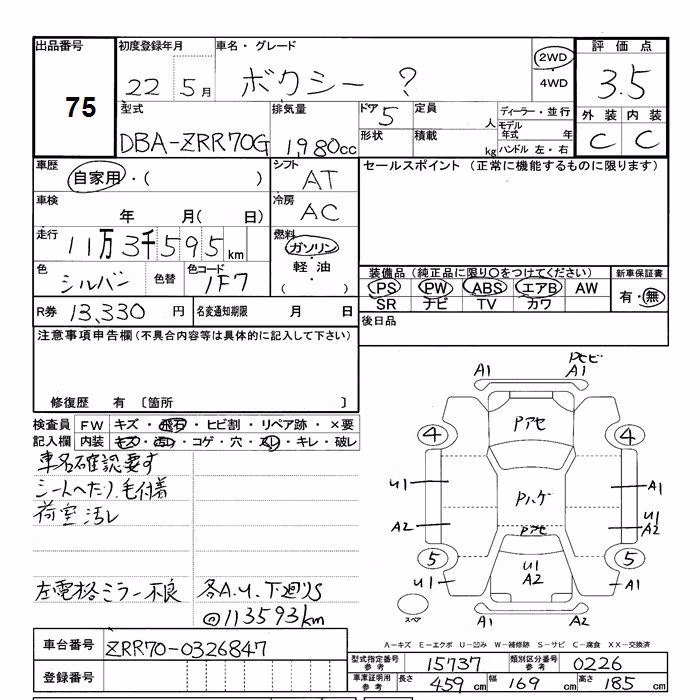 出品番号 75
初度登録年月 22年 5月
車名・グレード ボクシー ?
2WD・4WD
評価点 3.5
型式 DBA-ZRR70G
排気量 1,980cc
ドア 5
形状
定員 人
積載 kg
ディーラー・並行
モデル年式 年
ハンドル 左・右
外装 C 内装 C
車歴 自家用・( )
シフト AT
セールスポイント (正常に機能するものに限ります)
車検 年 月( 日)
冷房 AC
走行 11万3千595km
燃料 ガソリン・軽油・( )
色 シルバー 色替 色コード 1F7
装備品 (純正品に限り○をつけてください)
PS PW ABS エアB AW
SR ナビ TV カワ
新車保証書 有・無
R券 13,330円 名変通知期限 月 日
後日品
注意事項申告欄 (不具合内容等は具体的に記入して下さい)
修復歴 有 〔箇所 〕
検査員 FW キズ・飛石・ヒビ割・リペア跡・×要
記入欄 内装 キズ・汚レ・コゲ・穴・スレ・キレ・破レ
車名確認要す
シートへたり、毛付着
荷室汚レ
左電格ミラー不良 各A.U.下廻りS
@113593km
A1 A1 Pセビ
Pアセ
4 4
U1 A1
Pハゲ
U1
A2 A2
Pアセ
5 5
U1
A2
U1 A1
スペア
A1 A1
A-キズ E-エクボ U-凹み W-補修跡 S-サビ C-腐食 XX-交換済
車台番号 ZRR70-0326847
型式指定番号 参考 15737 類別区分番号 参考 0226
登録番号
車庫証明用 参考 長さ 459cm 幅 169cm 高さ 185cm